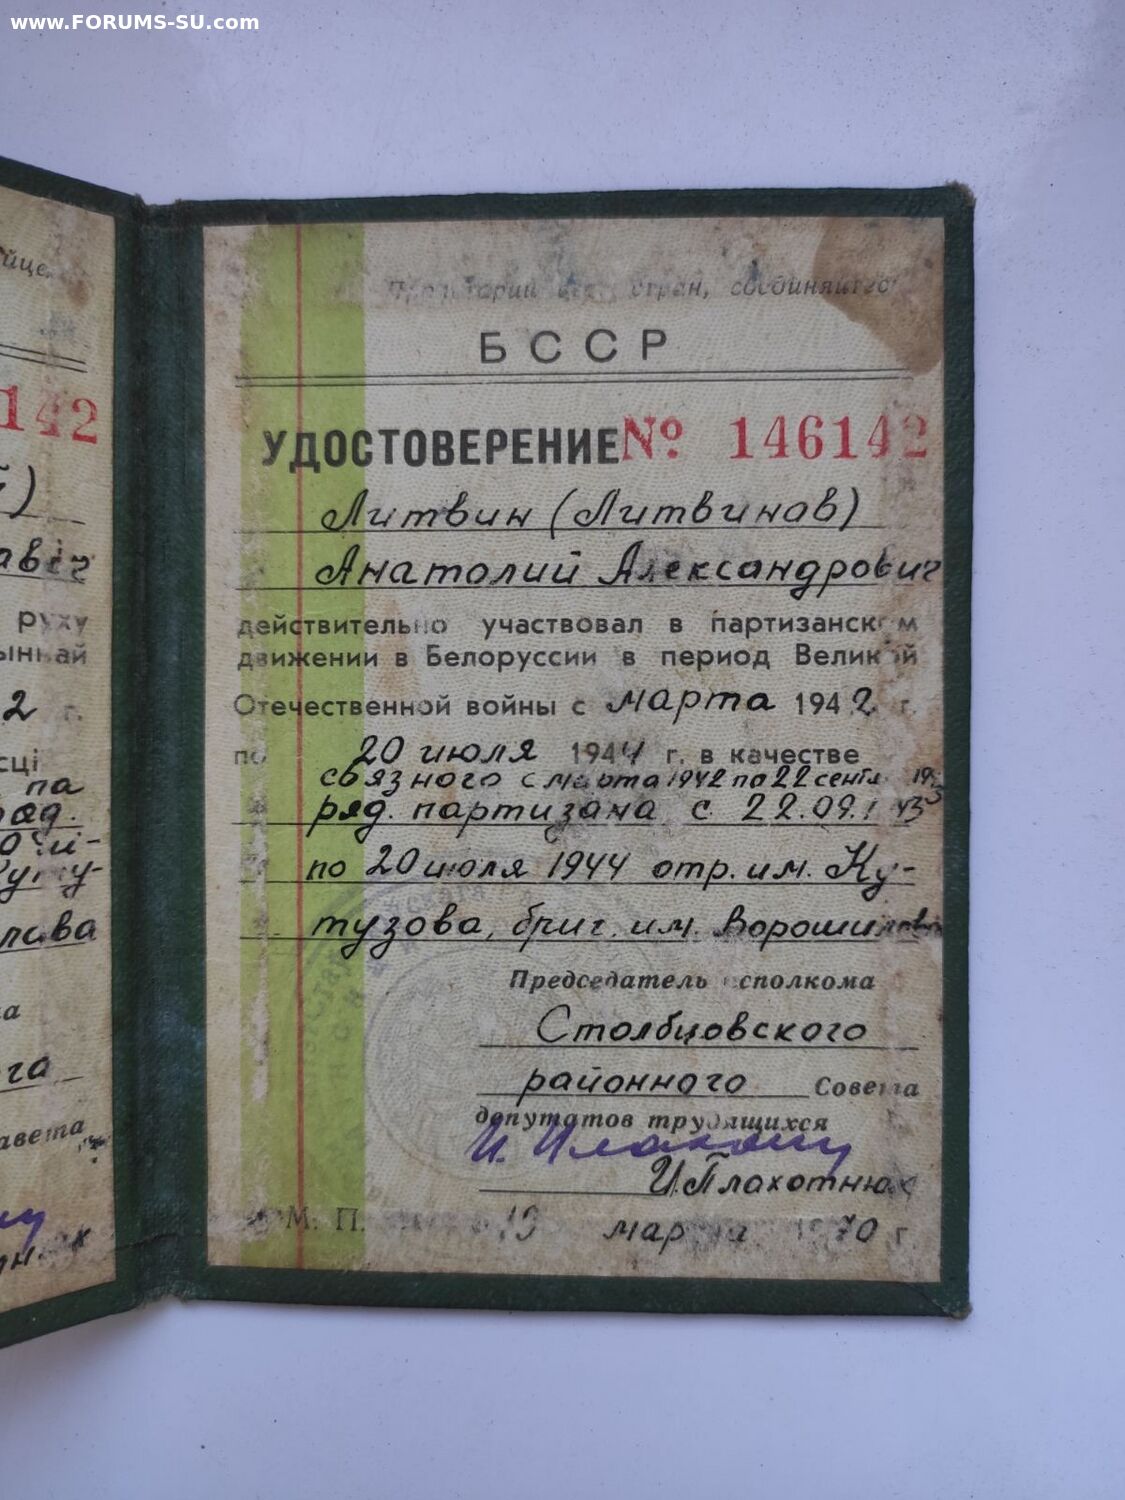 www.FORUMS-SU.com
142
авіч
руху
ыннай
2 г.
сці
па
рад.
лава
га
авета
Пролетарии всех стран, соединяйтесь
БССР
УДОСТОВЕРЕНИЕ № 146142
Литвин (Литвинов)
Анатолий Александрович
действительно участвовал в партизанском
движении в Белоруссии в период Великой
Отечественной войны с марта 1942 г.
по 20 июля 1944 г. в качестве
связного с марта 1942 по 22 сент. 1943
ряд. партизана с 22.09.1943
по 20 июля 1944 отр. им. Ку-
тузова, бриг. им. Ворошилова
Председатель исполкома
Столбцовского
районного Совета
депутатов трудящихся
И. Плахотнюк
М. П. 19 марта 1970 г.